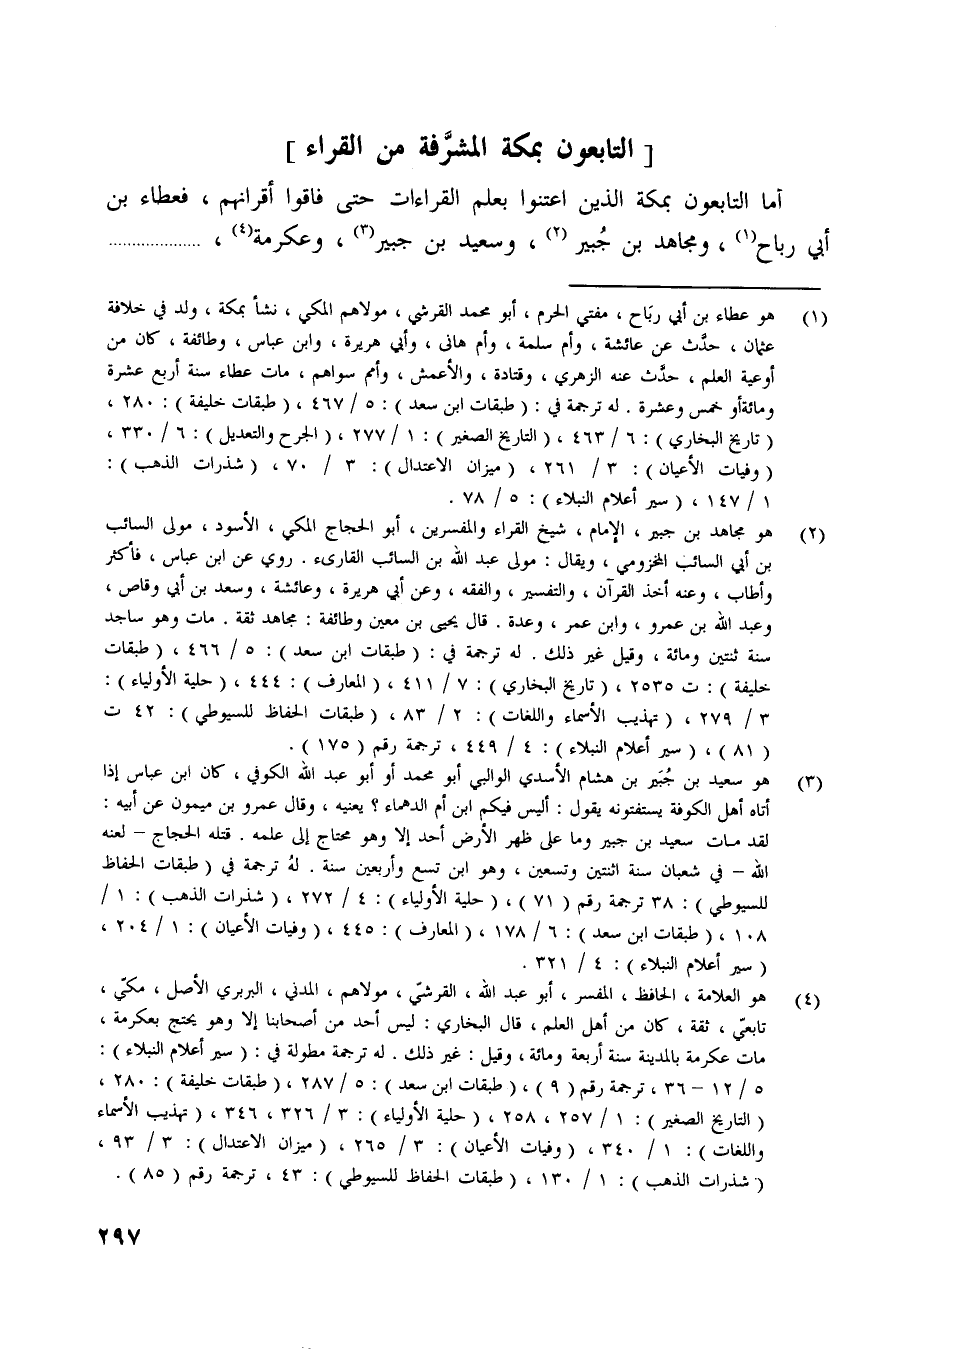 [ التابعون بمكة المشرَّفة من القراء ]
أما التابعون بمكة الذين اعتنوا بعلم القراءات حتى فاقوا أقرانهم ، فعطاء بن
أبي رباح(١) ، ومجاهد بن جُبير (٢) ، وسعيد بن جبير(٣) ، وعكرمة(٤) ، ....................
(١) هو عطاء بن أبي ربَاح ، مفتي الحرم ، أبو محمد القرشي ، مولاهم المكي ، نشأ بمكة ، ولد في خلافة
عثمان ، حدَّث عن عائشة ، وأم سلمة ، وأم هانى ، وأبي هريرة ، وابن عباس ، وطائفة ، كان من
أوعية العلم ، حدَّث عنه الزهري ، وقتادة ، والأعمش ، وأمم سواهم ، مات عطاء سنة أربع عشرة
ومائةأو خمس وعشرة . له ترجمة في : ( طبقات ابن سعد ) : ٥ / ٤٦٧ ، ( طبقات خليفة ) : ٢٨٠ ،
( تاريخ البخاري ) : ٦ / ٤٦٣ ، ( التاريخ الصغير ) : ١ / ٢٧٧ ، ( الجرح والتعديل ) : ٦ / ٣٣٠ ،
( وفيات الأعيان ) : ٣ / ٢٦١ ، ( ميزان الاعتدال ) : ٣ / ٧٠ ، ( شذرات الذهب ) :
١ / ١٤٧ ، ( سير أعلام النبلاء ) : ٥ / ٧٨ .
(٢) هو مجاهد بن جبير ، الإمام ، شيخ القراء والمفسرين ، أبو الحجاج المكي ، الأسود ، مولى السائب
بن أبي السائب المخزومي ، ويقال : مولى عبد الله بن السائب القارىء . روي عن ابن عباس ، فأكثر
وأطاب ، وعنه أخذ القرآن ، والتفسير ، والفقه ، وعن أبي هريرة ، وعائشة ، وسعد بن أبي وقاص ،
وعبد الله بن عمرو ، وابن عمر ، وعدة . قال يحيى بن معين وطائفة : مجاهد ثقة . مات وهو ساجد
سنة ثنتين ومائة ، وقيل غير ذلك . له ترجمة في : ( طبقات ابن سعد ) : ٥ / ٤٦٦ ، ( طبقات
خليفة ) : ت ٢٥٣٥ ، ( تاريخ البخاري ) : ٧ / ٤١١ ، ( المعارف ) : ٤٤٤ ، ( حلية الأولياء ) :
٣ / ٢٧٩ ، ( تهذيب الأسماء واللغات ) : ٢ / ٨٣ ، ( طبقات الحفاظ للسيوطي ) : ٤٢ ت
( ٨١ ) ، ( سير أعلام النبلاء ) : ٤ / ٤٤٩ ، ترجمة رقم ( ١٧٥ ) .
(٣) هو سعيد بن جُبَير بن هشام الأسدي الوالبي أبو محمد أو أبو عبد الله الكوفي ، كان ابن عباس إذا
أتاه أهل الكوفة يستفتونه يقول : أليس فيكم ابن أم الدهماء ؟ يعنيه ، وقال عمرو بن ميمون عن أبيه :
لقد مات سعيد بن جبير وما على ظهر الأرض أحد إلا وهو محتاج إلى علمه . قتله الحجاج – لعنه
الله – في شعبان سنة اثنتين وتسعين ، وهو ابن تسع وأربعين سنة . لهُ ترجمة في ( طبقات الحفاظ
للسيوطي ) : ٣٨ ترجمة رقم ( ٧١ ) ، ( حلية الأولياء ) : ٤ / ٢٧٢ ، ( شذرات الذهب ) : ١ /
١٠٨ ، ( طبقات ابن سعد ) : ٦ / ١٧٨ ، ( المعارف ) : ٤٤٥ ، ( وفيات الأعيان ) : ١ / ٢٠٤ ،
( سير أعلام النبلاء ) : ٤ / ٣٢١ .
(٤) هو العلامة ، الحافظ ، المفسر ، أبو عبد الله ، القرشيّ ، مولاهم ، المدني ، البربري الأصل ، مكيّ ،
تابعيّ ، ثقة ، كان من أهل العلم ، قال البخاري : ليس أحد من أصحابنا إلا وهو يحتج بعكرمة ،
مات عكرمة بالمدينة سنة أربعة ومائة ، وقيل : غير ذلك . له ترجمة مطولة في : ( سير أعلام النبلاء ) :
٥ / ١٢ – ٣٦ ، ترجمة رقم ( ٩ ) ، ( طبقات ابن سعد ) : ٥ / ٢٨٧ ، ( طبقات خليفة ) : ٢٨٠ ،
( التاريخ الصغير ) : ١ / ٢٥٧ ، ٢٥٨ ، ( حلية الأولياء ) : ٣ / ٣٢٦ ، ٣٤٦ ، ( تهذيب الأسماء
واللغات ) : ١ / ٣٤٠ ، ( وفيات الأعيان ) : ٣ / ٢٦٥ ، ( ميزان الاعتدال ) : ٣ / ٩٣ ،
( شذرات الذهب ) : ١ / ١٣٠ ، ( طبقات الحفاظ للسيوطي ) : ٤٣ ، ترجمة رقم ( ٨٥ ) .
٢٩٧